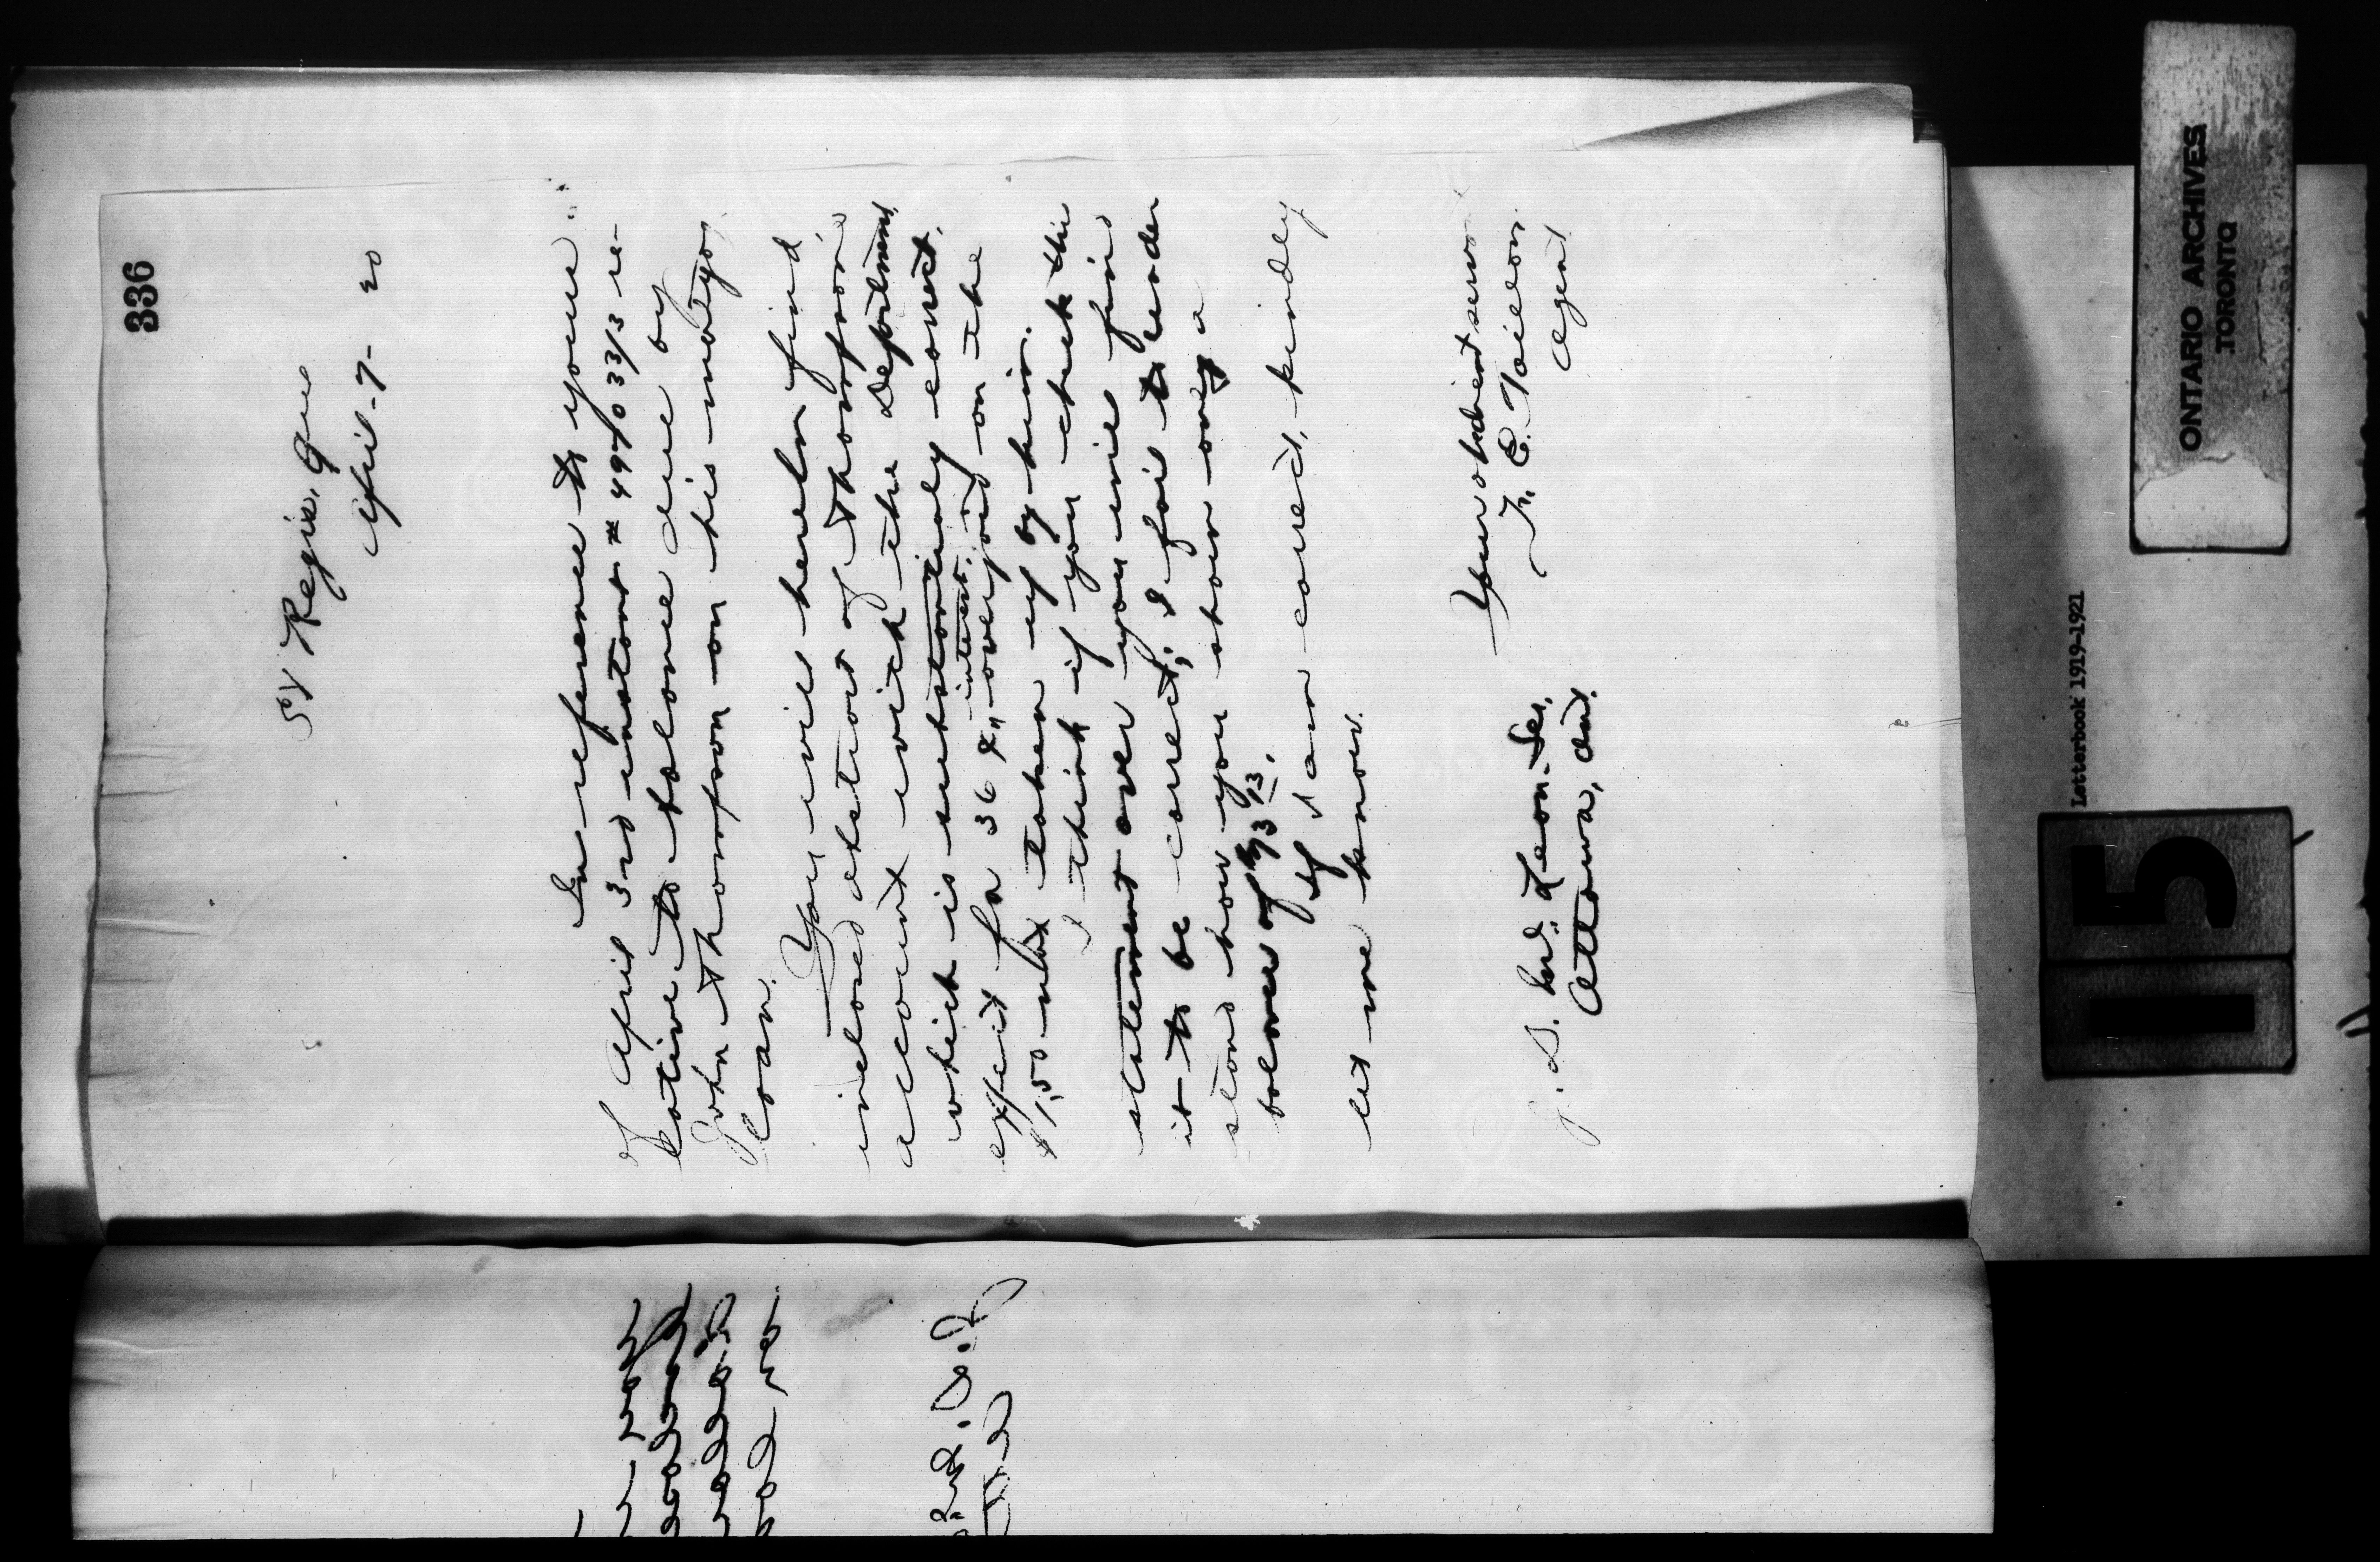 336
St Regis, Que
April-7-20
In reference to yours
of April 3rd instant # 499/033/13 re-
lative to balance due by
John Thompson on his mortgage
loan.
You will herein find
inclosed abstract of Thompson's
account with the Department
which is substantially correct,
except for 36 ¢ interest
overpaid on the
$1,50 not taken up by him.
I think if you check the
statement over you will find
it to be correct; I fail to under
stand how you show owing a
balance of
If I am correct, kindly
let me know.
Your obedient serv
F. E. Taillon
Agent
J. D. McLean Sec,
Ottawa, Ont.
ONTARIO ARCHIVES
TORONTO
Letterbook 1919-1921
15